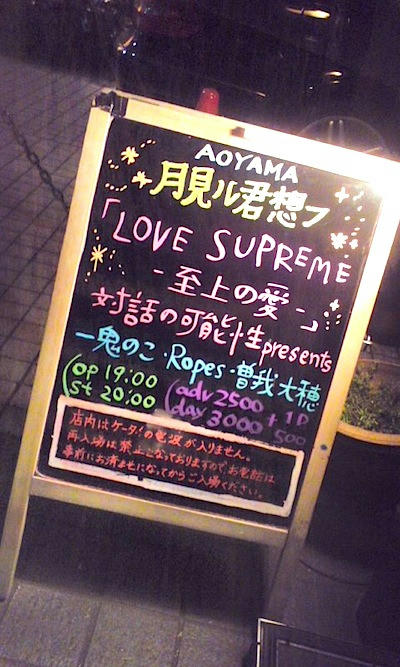 AOYAMA
月見ル君想フ
「LOVE SUPREME
-至上の愛-」
対話の可能性presents
一鬼のこ・Ropes・曽我大穂
(op 19:00
st 20:00
(adv 2500
day 3000
+ 1D
500
店内はケータイの電波が入りません。
再入場は禁止となっておりますので、お電話は
事前にお済ませになってからご入場ください。